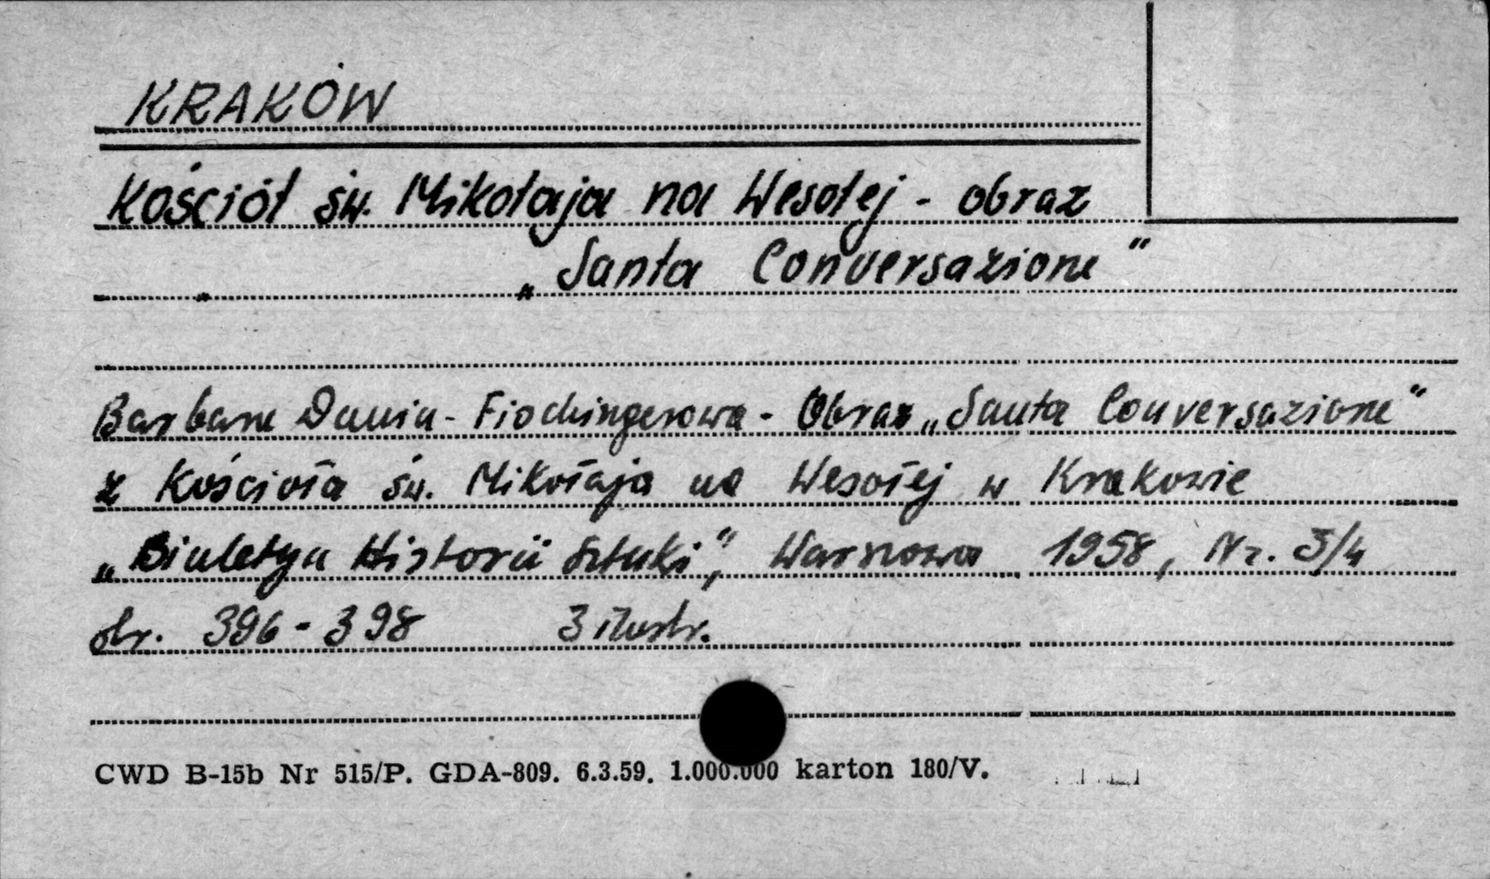 KRAKÓW
Kościół św. Mikołaja na Wesołej - obraz
„Santa Conversazione"
Barbara Dania-Fischingerowa - Obraz „Santa Conversazione"
z Kościoła św. Mikołaja na Wesołej w Krakowie
„Biuletyn Historii Sztuki", Warszawa 1958, Nr. 3/4
str. 396-398 3 ilustr.
CWD B-15b Nr 515/P. GDA-809. 6.3.59. 1.000.000 karton 180/V.